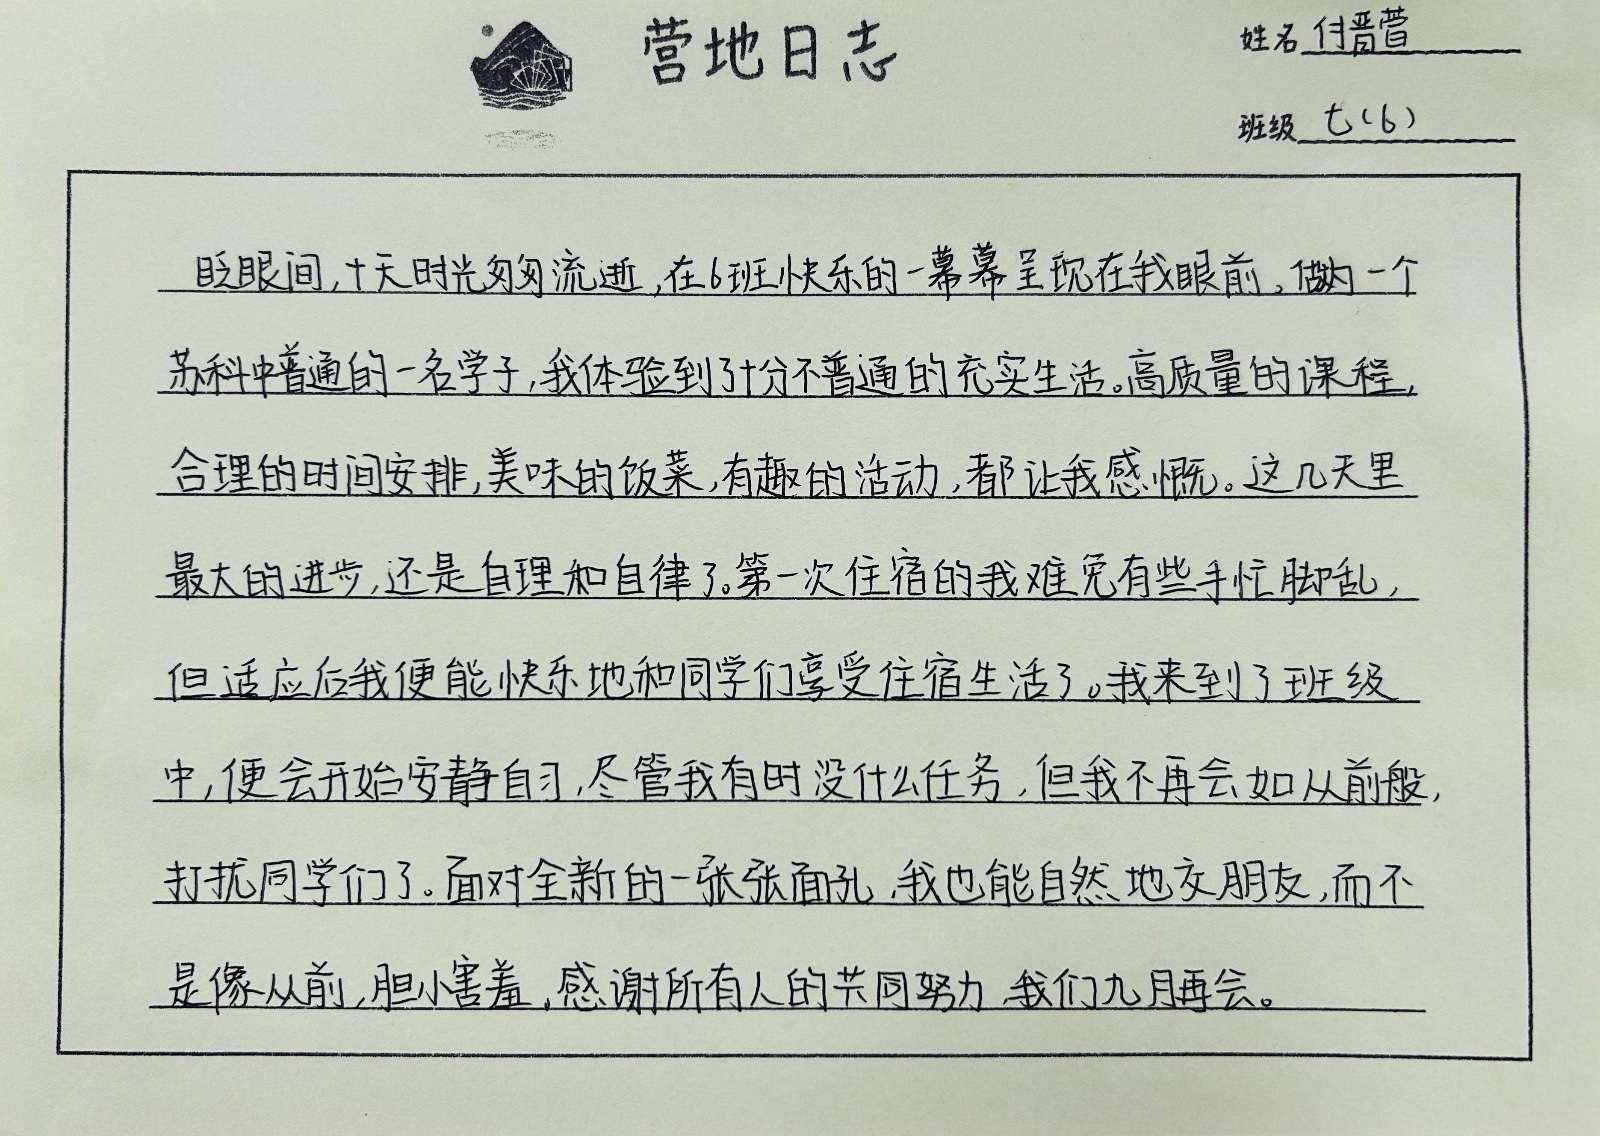 营地日志
姓名 付晋萱
班级 七(6)
眨眼间,十天时光匆匆流逝,在6班快乐的一幕幕呈现在我眼前,做为一个
苏科中普通的一名学子,我体验到了十分不普通的充实生活。高质量的课程,
合理的时间安排,美味的饭菜,有趣的活动,都让我感慨。这几天里
最大的进步,还是自理和自律了。第一次住宿的我难免有些手忙脚乱,
但适应后我便能快乐地和同学们享受住宿生活了。我来到了班级
中,便会开始安静自习,尽管我有时没什么任务,但我不再会如从前般,
打扰同学们了。面对全新的一张张面孔,我也能自然地交朋友,而不
是像从前,胆小害羞,感谢所有人的共同努力,我们九月再会。